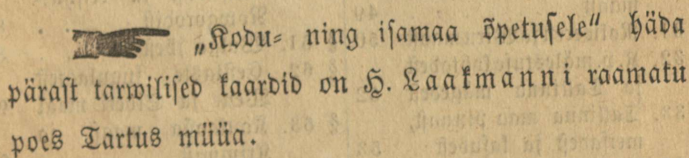 „Kodu- ning isamaa õpetusele“ häda
pärast tarwilised kaardid on H. Laakmanni raamatu
poes Tartus müüa.